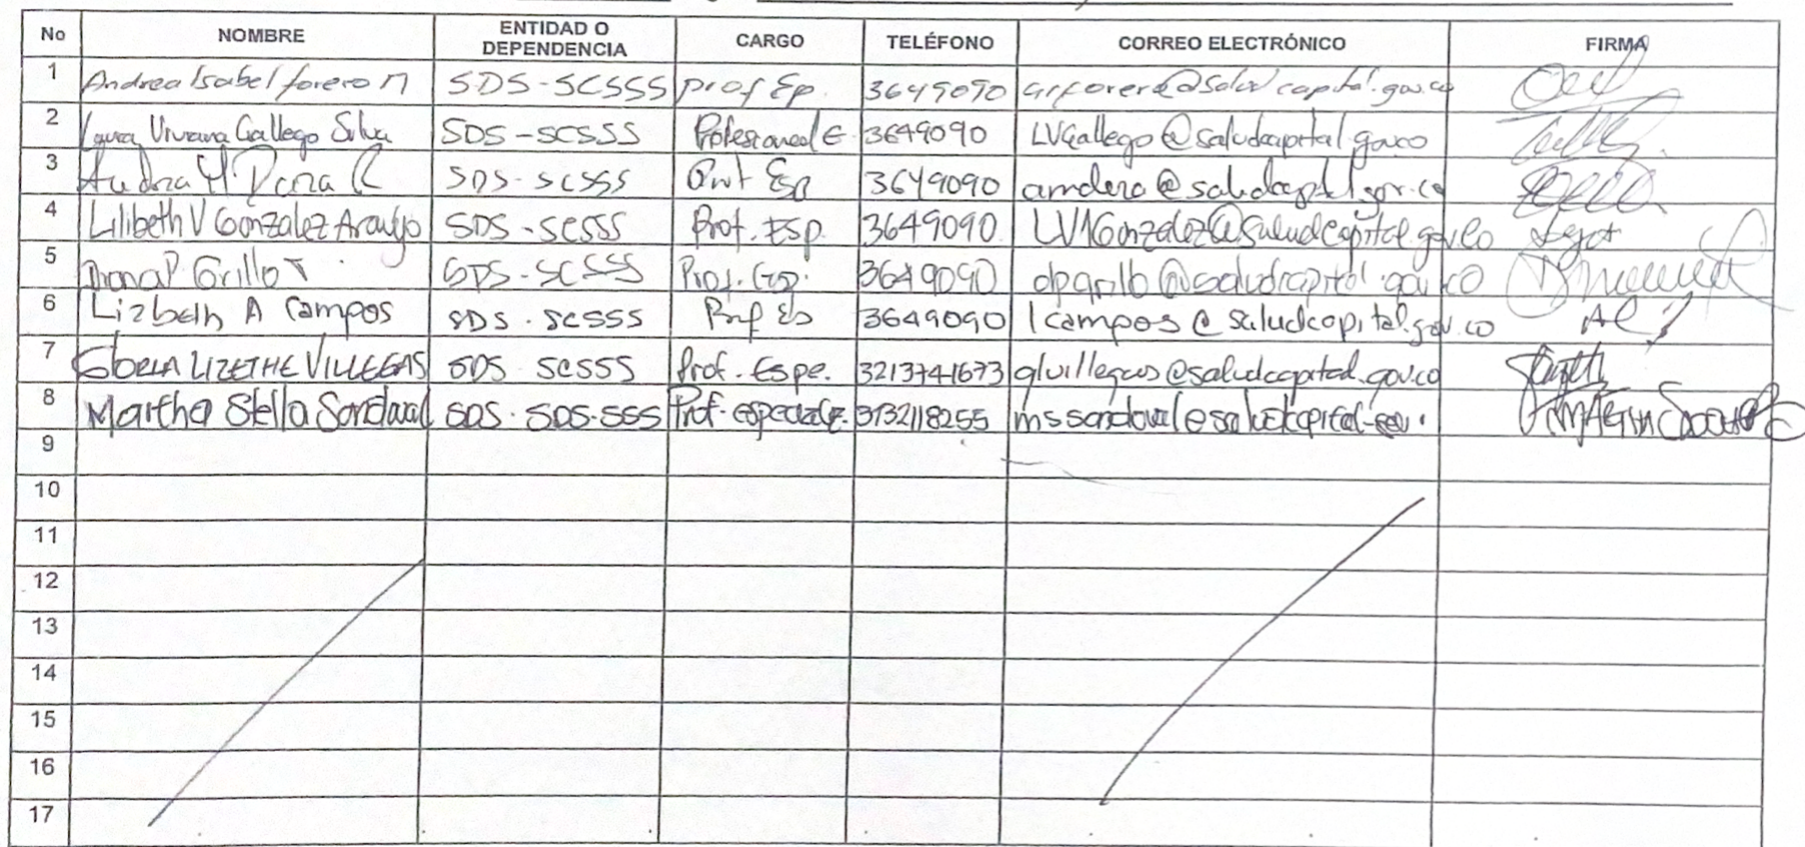 No NOMBRE ENTIDAD O DEPENDENCIA CARGO TELÉFONO CORREO ELECTRÓNICO FIRMA
1 Andrea Isabel forero n SDS-SCSSS prof Ep. 3649090
2 Laura Viviana Gallego Silva SDS-SCSSS Profesional E 3649090 LVGallego@saludcapital.gov.co
3 SDS-SCSSS 3649090
4 Lilibeth V Gonzalez Araujo SDS-SCSSS Prof. Esp. 3649090 LV1Gonzalez@saludcapital.gov.co
5 Diana P Grillo T SDS-SCSSS Prof. Esp. 3649090 dpgrillo@saludcapital.gov.co
6 Lizbeth A Campos SDS. SCSSS Prof Es 3649090 lcampos@saludcapital.gov.co
7 GLORIA LIZETHE VILLEGAS SDS SCSSS Prof. Espe. 3213741673 glvillegas@saludcapital.gov.co
8 Martha Stella Sandoval SDS. SDS-SSS Prof. especializ. 3132118255
9
10
11
12
13
14
15
16
17